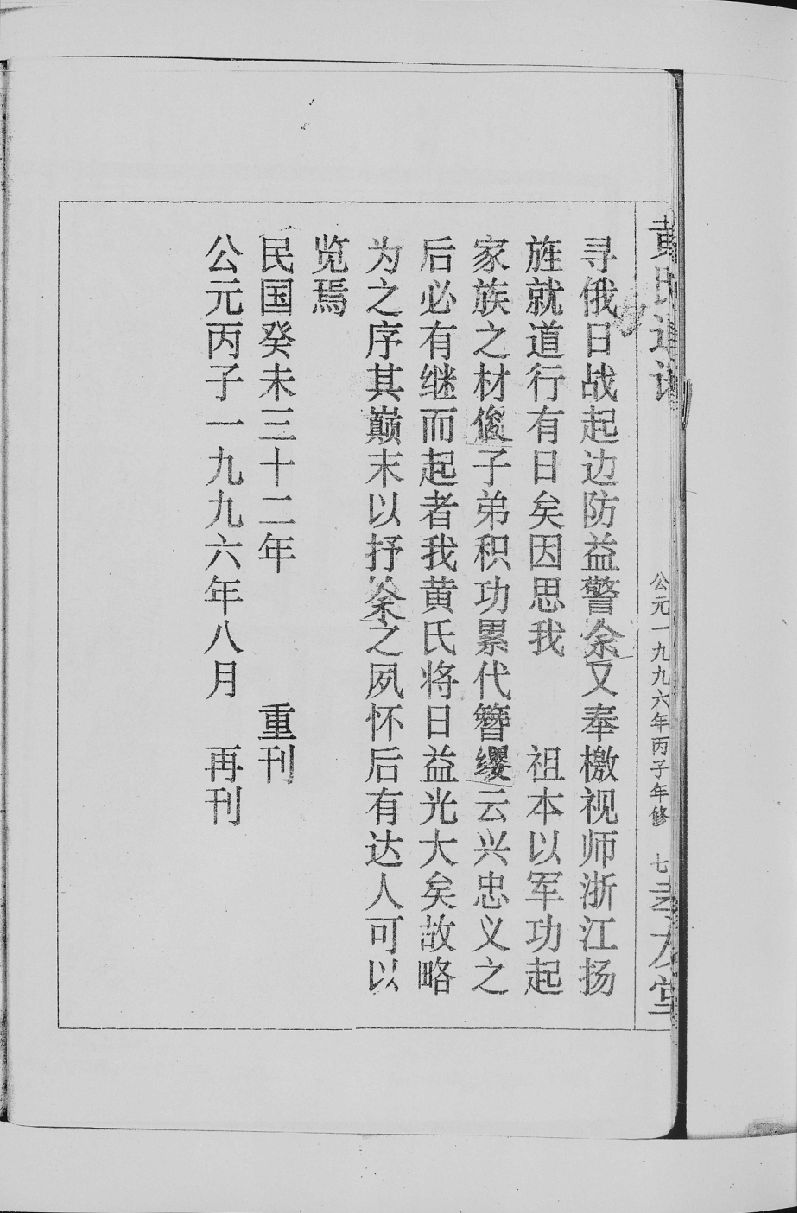 黄氏通谱
公元一九九六年丙子年修 七 孝友堂
寻俄日战起边防益警余又奉檄视师浙江扬
旌就道行有日矣因思我 祖本以军功起
家族之材俊子弟积功累代簪缨云兴忠义之
后必有继而起者我黄氏将日益光大矣故略
为之序其巅末以抒余之夙怀后有达人可以
览焉
民国癸未三十二年 重刊
公元丙子一九九六年八月 再刊